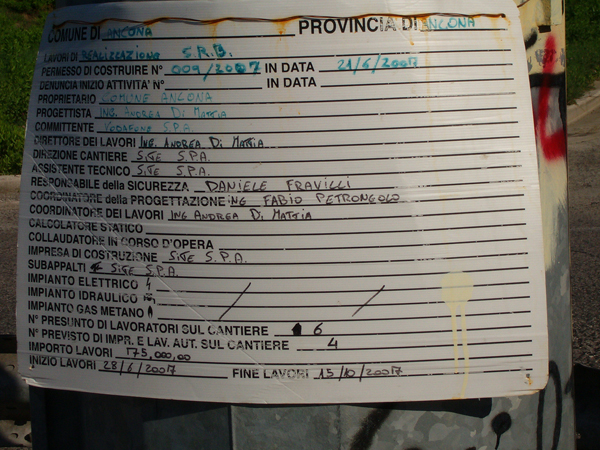 COMUNE DI ANCONA PROVINCIA DI ANCONA
LAVORI DI REALIZZAZIONE S.R.B.
PERMESSO DI COSTRUIRE N° 009/2007 IN DATA 21/6/2007
DENUNCIA INIZIO ATTIVITA' N° IN DATA
PROPRIETARIO COMUNE ANCONA
PROGETTISTA ING. ANDREA DI MATTIA
COMMITTENTE VODAFONE S.P.A.
DIRETTORE DEI LAVORI ING. ANDREA DI MATTIA
DIREZIONE CANTIERE SITE S.P.A.
ASSISTENTE TECNICO SITE S.P.A.
RESPONSABILE della SICUREZZA DANIELE FRAVILLI
COORDINATORE della PROGETTAZIONE ING FABIO PETRONGOLO
COORDINATORE DEI LAVORI ING ANDREA DI MATTIA
CALCOLATORE STATICO
COLLAUDATORE IN CORSO D'OPERA
IMPRESA DI COSTRUZIONE SITE S.P.A.
SUBAPPALTI SITE S.P.A.
IMPIANTO ELETTRICO
IMPIANTO IDRAULICO
IMPIANTO GAS METANO
N° PRESUNTO DI LAVORATORI SUL CANTIERE 6
N° PREVISTO DI IMPR. E LAV. AUT. SUL CANTIERE 4
IMPORTO LAVORI 175,000,00
INIZIO LAVORI 28/6/2007 FINE LAVORI 15/10/2007